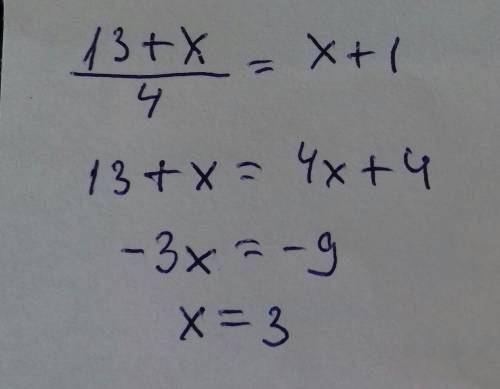 13+x/4 = x+1
13+x = 4x+4
-3x = -9
x = 3